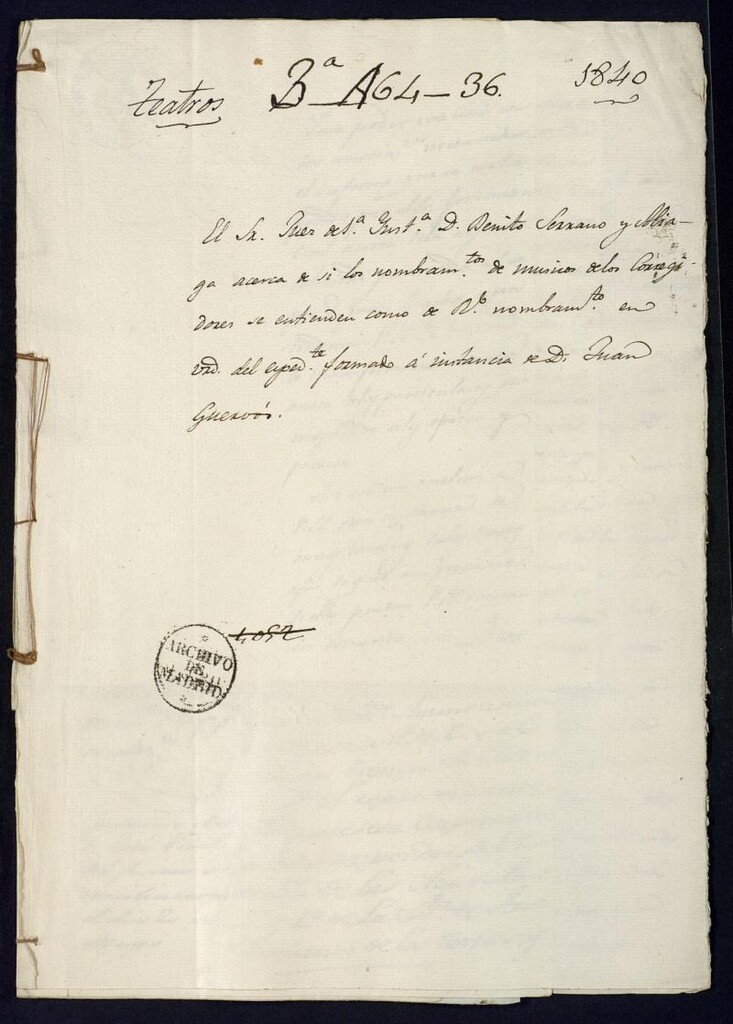 Teatros 3ª A 64-36. 1840
El Sr. Juez de 1.ª Ynst.ª D. Benito Serrano y Alia-
ga acerca de si los nombram.tos de musicos de los Corregi-
dores se entienden como de R.l nombram.to en
vrd. del exped.te formado á instancia de D. Juan
Guervós.
4,052
ARCHIVO
DE
MADRID